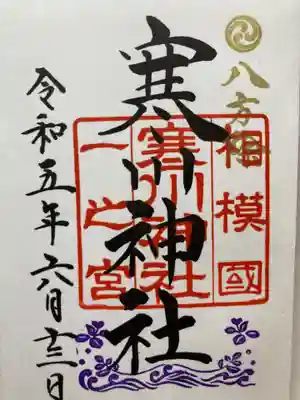 八方除
相模國
一之宮
寒川神社
寒川神社
令和五年六月十三日